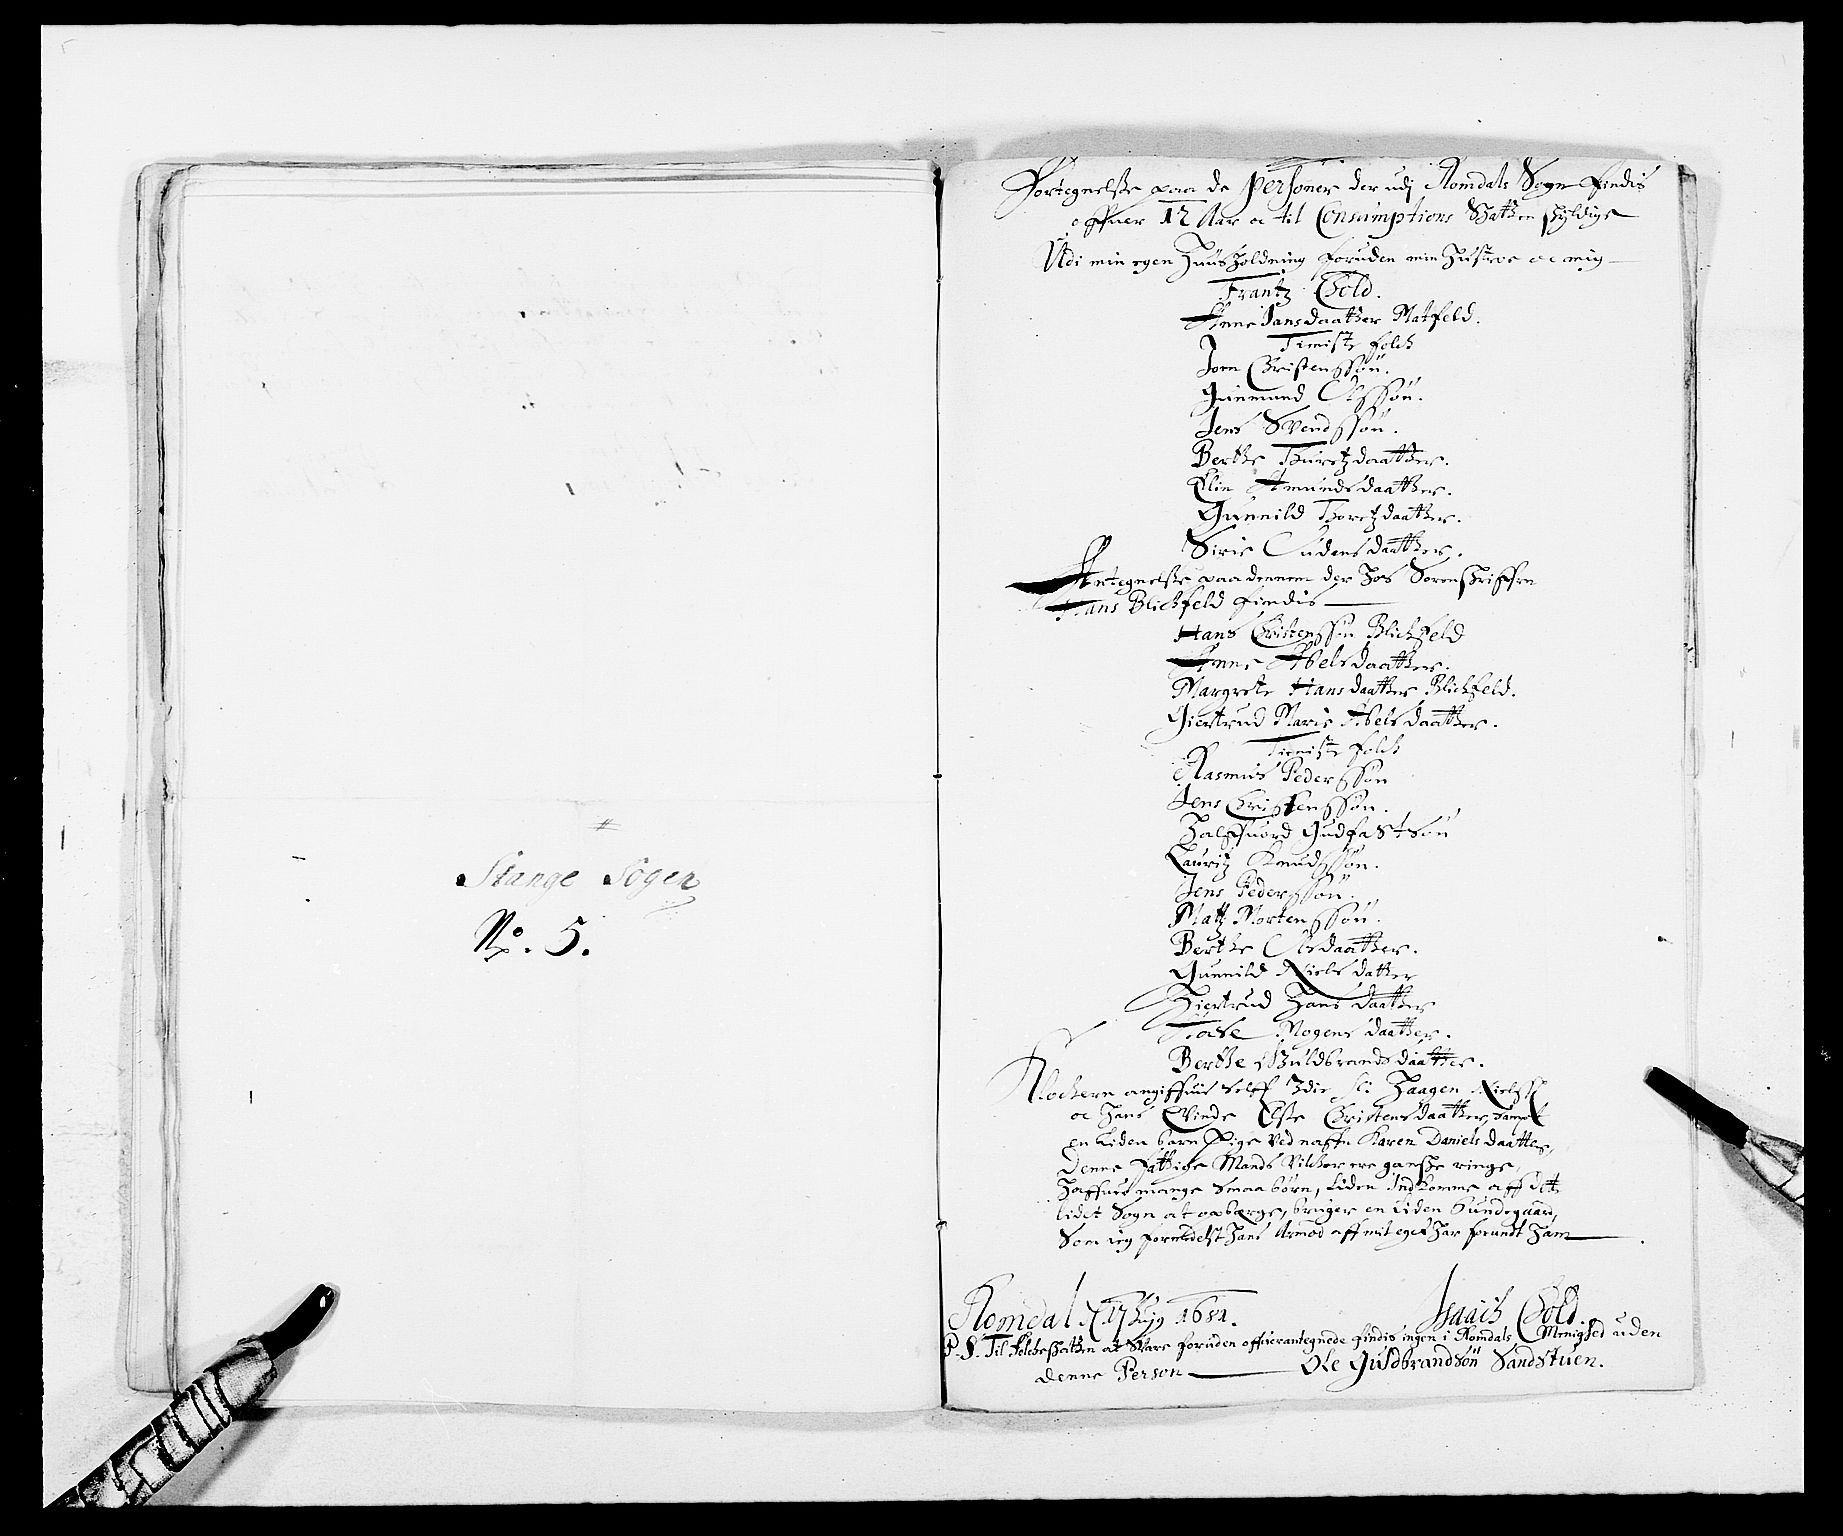 Stange Sogen
No. 5.
Fortegnelsse paa de Personer der udj Romdals Sogn findis
offuer 12 Aar oc til Consumptions Skatten skyldige
Udi min egen Huusholdning foruden min Hustroe oc mig
Frantz Cold.
Anne Jansdaatter Matfeld.
Tieniste folck
Joen Christenssøn.
Gunmund Olssøn.
Jens Svendssøn.
Berthe Thuretzdaatter.
Elin Amundsdaatter.
Gunnild Thoretzdaatter.
Sirie Audensdaatter.
Antegnelsse paa dennem der hos Sorenskriffren
Hans Blichfeld findis
Hans Christenssøn Blichfeld
Anne Abelsdaatter.
Margrete Hansdaatter Blichfeld.
Giertrud Marie Abelsdaatter.
Tieniste folck
Rasmus Pederssøn
Jens Christenssøn.
Halffuord Gudfastsøn
Lauritz Knudssøn.
Jens Pederssøn.
Matz Mortenssøn.
Berthe Olsdaatter.
Gunnild Nielsdatter
Giertrud Hansdaatter
Mogensdaatter.
Berthe Guldbrandsdaatter.
Klockern angiffuis selff 3die Haagen Nielss:
oc hans Qvinde Else Christensdaatter, sampt
en liden barn Pige ved naffn Karen Danielsdaatter,
Denne fattige Mands Vilckor ere ganske ringe,
haffuer mange smaa børn, liden Indkomme aff dette
lidet Sogn at opbærge, bruger en liden bundegaard,
Som jeg formedelst hans Armod aff mit eget har forundt ham
Romdal d. 17 1681.
Isaach Cold.
P.S. Til folckeskatten at svare foruden offuerantegnede findis ingen i Romdals Menighed uden
denne Person Ole Guldbrandsøn Sandstuen.